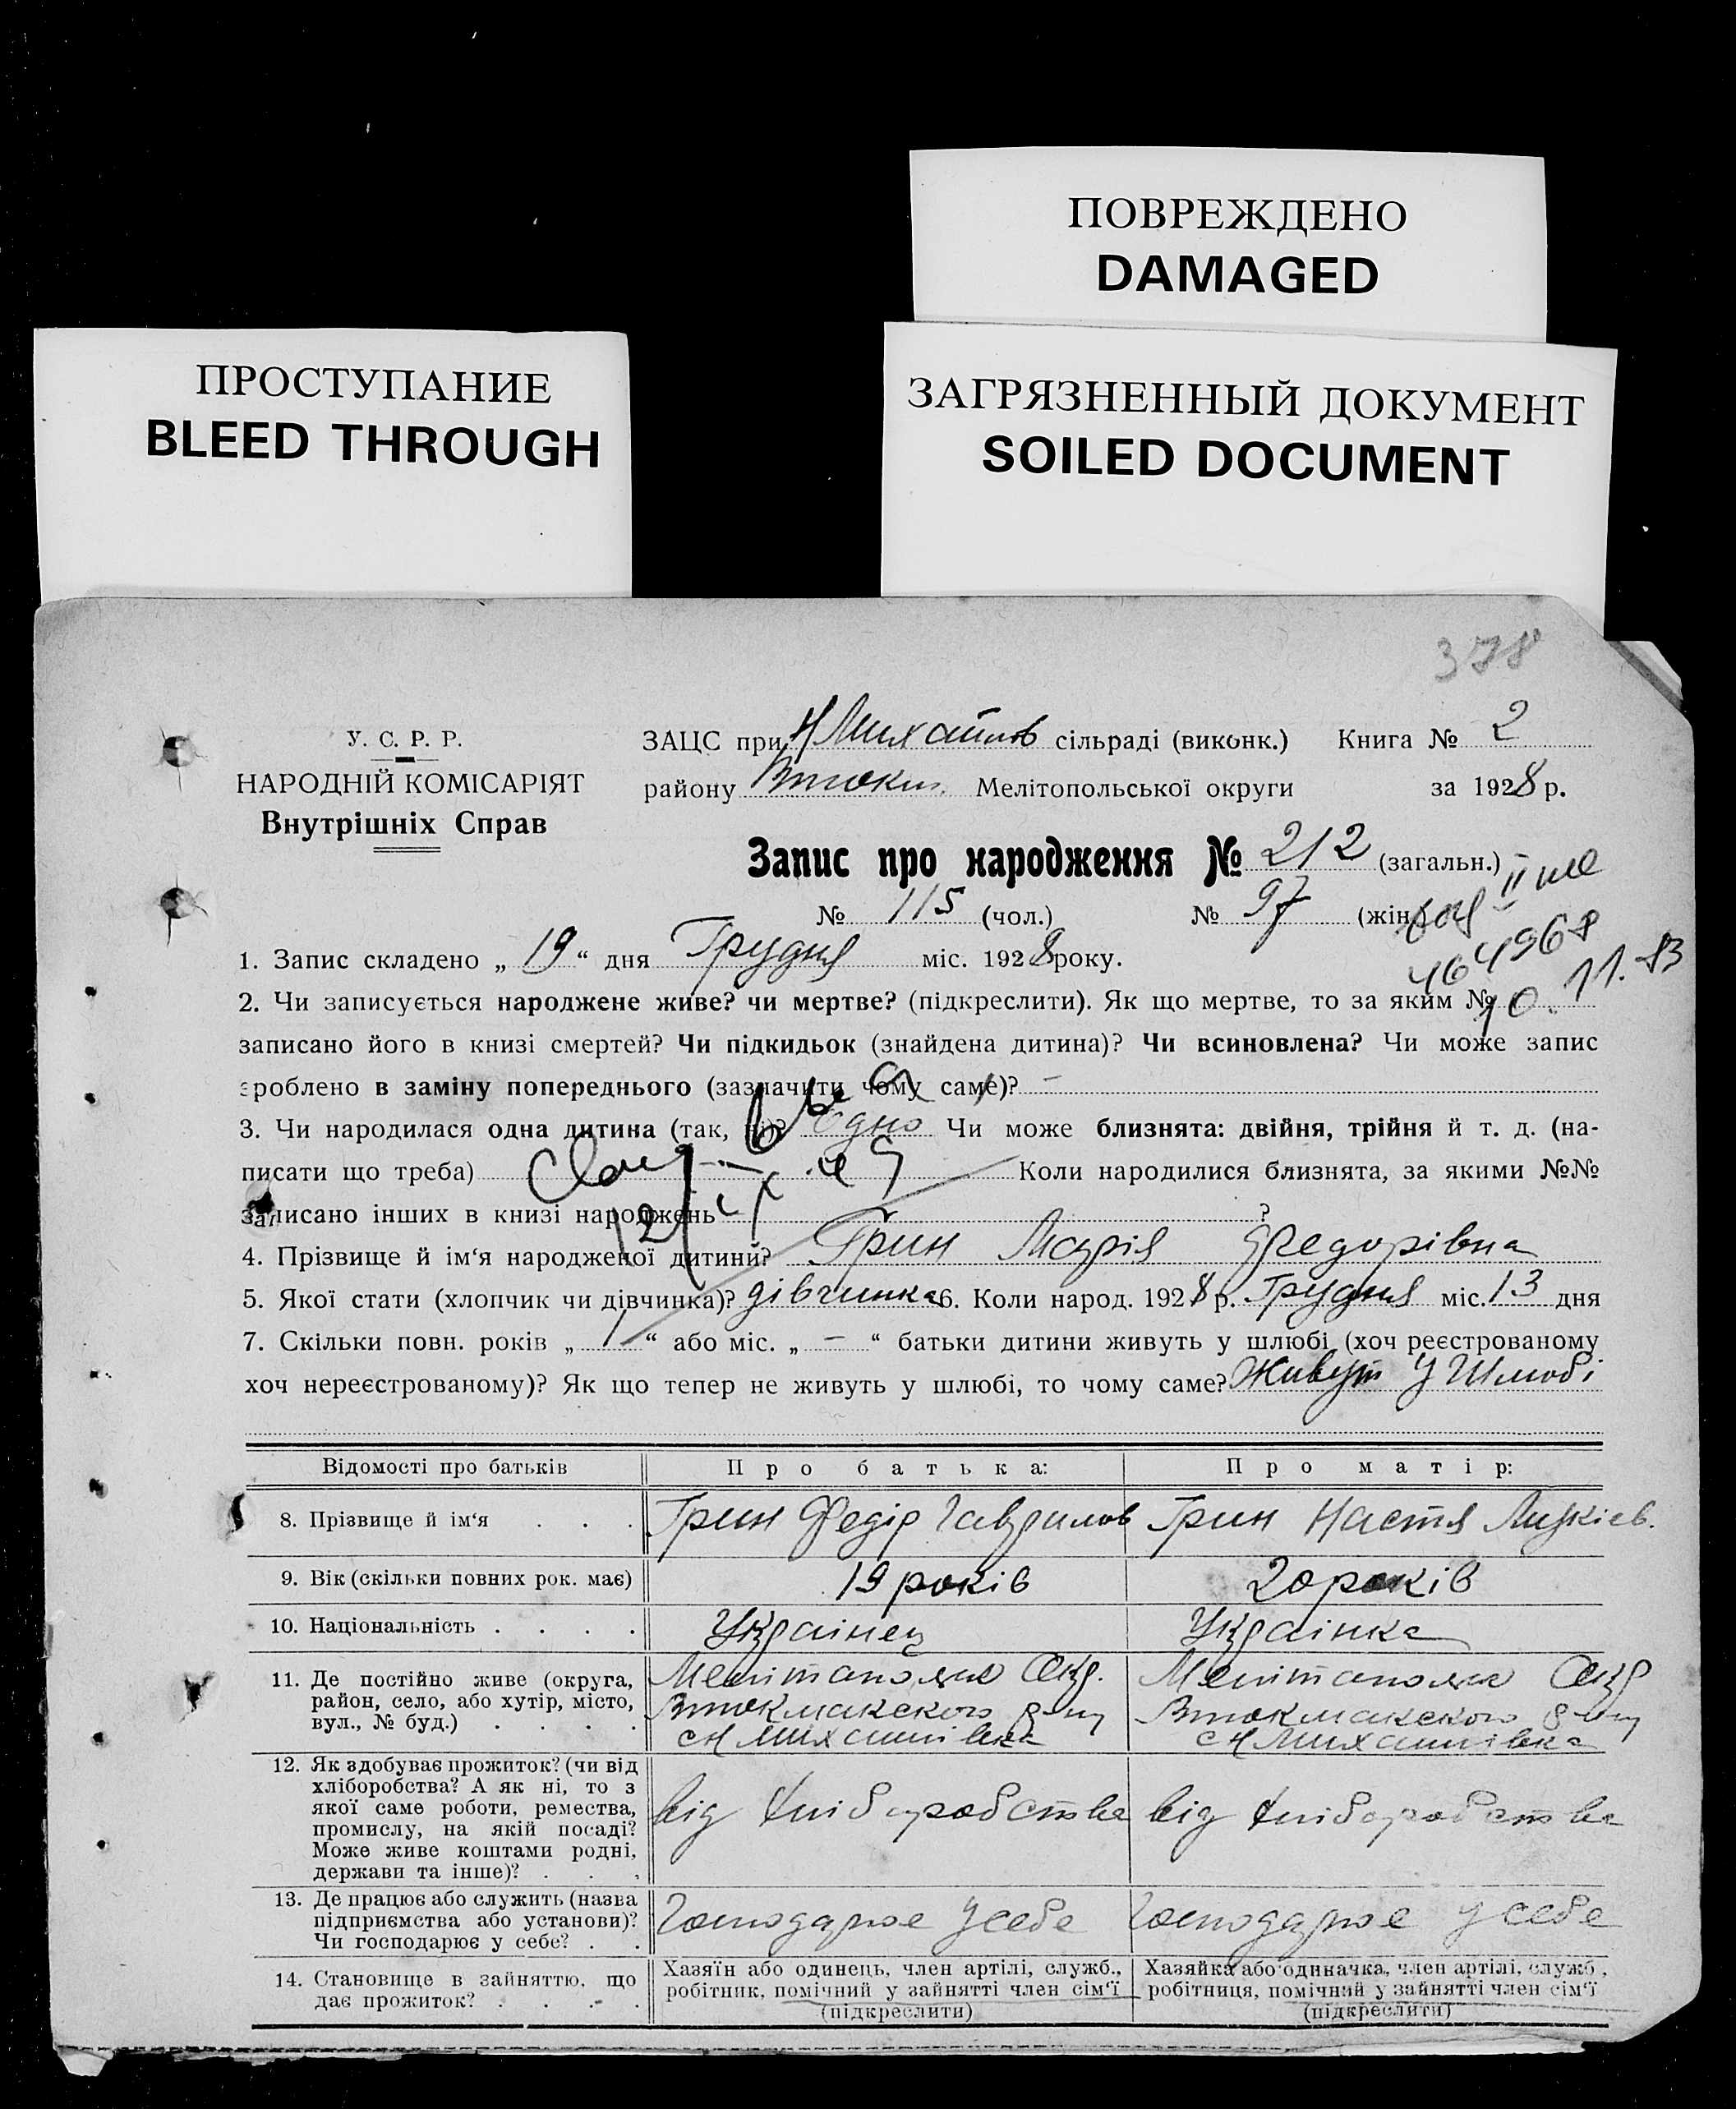 ПОВРЕЖДЕНО
DAMAGED
ПРОСТУПАНИЕ
BLEED THROUGH
ЗАГРЯЗНЕННЫЙ ДОКУМЕНТ
SOILED DOCUMENT
378
У. С. Р. Р.
НАРОДНІЙ КОМІСАРІЯТ
Внутрішніх Справ
ЗАЦС при Н Михайлов сільраді (виконк.) Книга № 2
району Втокм. Мелітопольської округи за 1928 р.
Запис про народження № 212 (загальн.)
№ 115 (чол.) № 97 (жін.)
464968
10. 11. 83
1. Запис складено „ 19 “ дня Грудня міс. 1928 року.
2. Чи записується народжене живе? чи мертве? (підкреслити). Як що мертве, то за яким №
записано його в книзі смертей? Чи підкидьок (знайдена дитина)? Чи всиновлена? Чи може запис
зроблено в заміну попереднього (зазначити чому саме)? —
3. Чи народилася одна дитина (так, ні)? Одно Чи може близнята: двійня, трійня й т. д. (на-
писати що треба) Коли народилися близнята, за якими №№
записано інших в книзі народжень ?
4. Прізвище й ім‘я народженої дитини? Грин Марія Федорівна
5. Якої стати (хлопчик чи дівчинка)? дівчинка 6. Коли народ. 1928 р. Грудня міс. 13 дня
7. Скільки повн. років „ 1 “ або міс. „ — “ батьки дитини живуть у шлюбі (хоч реєстрованому
хоч нереєстрованому)? Як що тепер не живуть у шлюбі, то чому саме? Живут У Шлюбі
Відомості про батьків Про батька: Про матір:
8. Прізвище й ім‘я . . . Грин Федір Гаврилов Грин Настя Лукіев.
9. Вік (скільки повних рок. має) 19 років 20 років
10. Національність . . . . Українец Українка
11. Де постійно живе (округа, Мелітаполск Окр. Мелітаполск Окр
район, село, або хутір, місто, Втокмакского р-ну Втокмакского р-ну
вул., № буд.) . . . . с Н Михайлівка с Н Михайлівка
12. Як здобуває прожиток? (чи від
хліборобства? А як ні, то з
якої саме роботи, ремества, від хліборобства від хліборобства
промислу, на якій посаді?
Може живе коштами родні,
держави та інше)? . . .
13. Де працює або служить (назва
підприємства або установи)? Господарює у себе Господарює у себе
Чи господарює у себе? . .
14. Становище в зайняттю, що Хазяїн або одинець, член артілі, служб., Хазяйка або одиначка, член артілі, служб.,
дає прожиток? . . . . робітник, помічний у зайнятті член сім‘ї робітниця, помічний у зайнятті член сім‘ї
(підкреслити) (підкреслити)